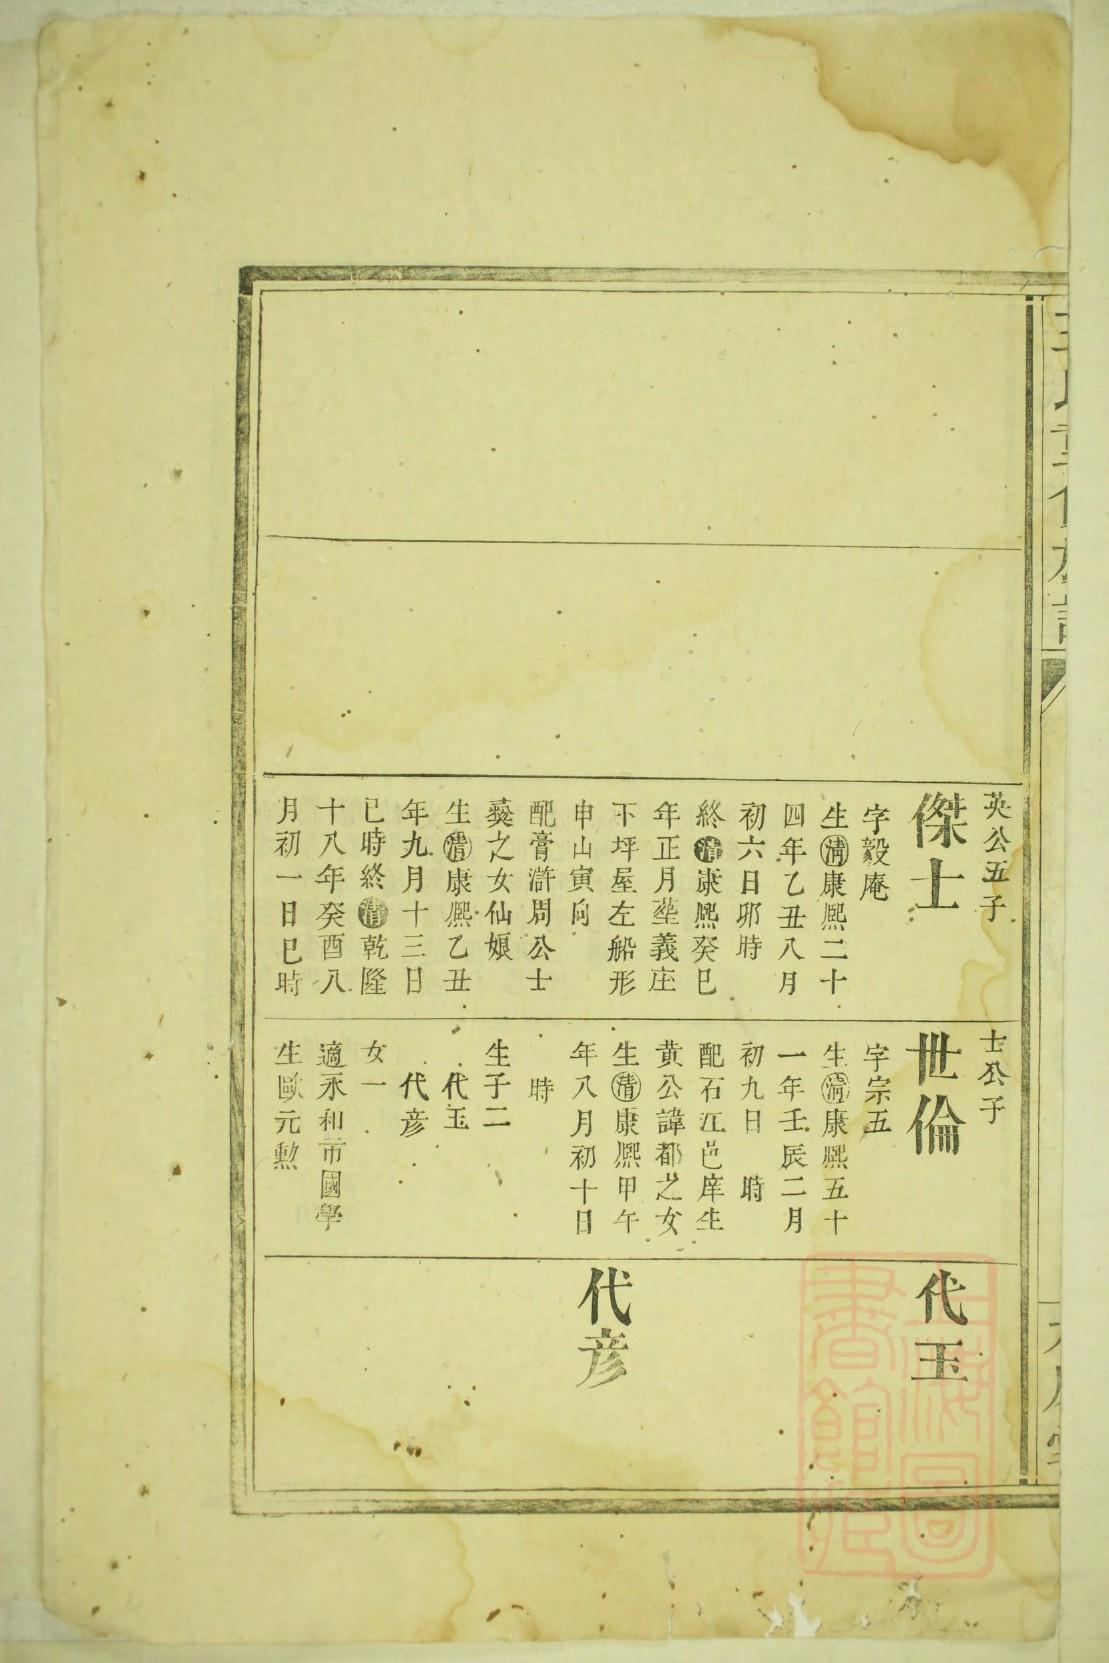 英公五子
傑士
字毅庵
生清康熙二十
四年乙丑八月
初六日卯時
終清康熙癸巳
年正月塟義庄
下坪屋左船形
申山寅向
配膏滸周公士
之女仙娘
生清康熙乙丑
年九月十三日
巳時終清乾隆
十八年癸酉八
月初一日巳時
士公子
世倫
字宗五
生清康熙五十
一年壬辰二月
初九日 時
配石江邑庠生
黄公諱都之女
生清康熙甲午
年八月初十日
時
生子二
代玉
代彦
女一
適永和市國學
生歐元勲
代玉
代彦
上海圖
書館藏